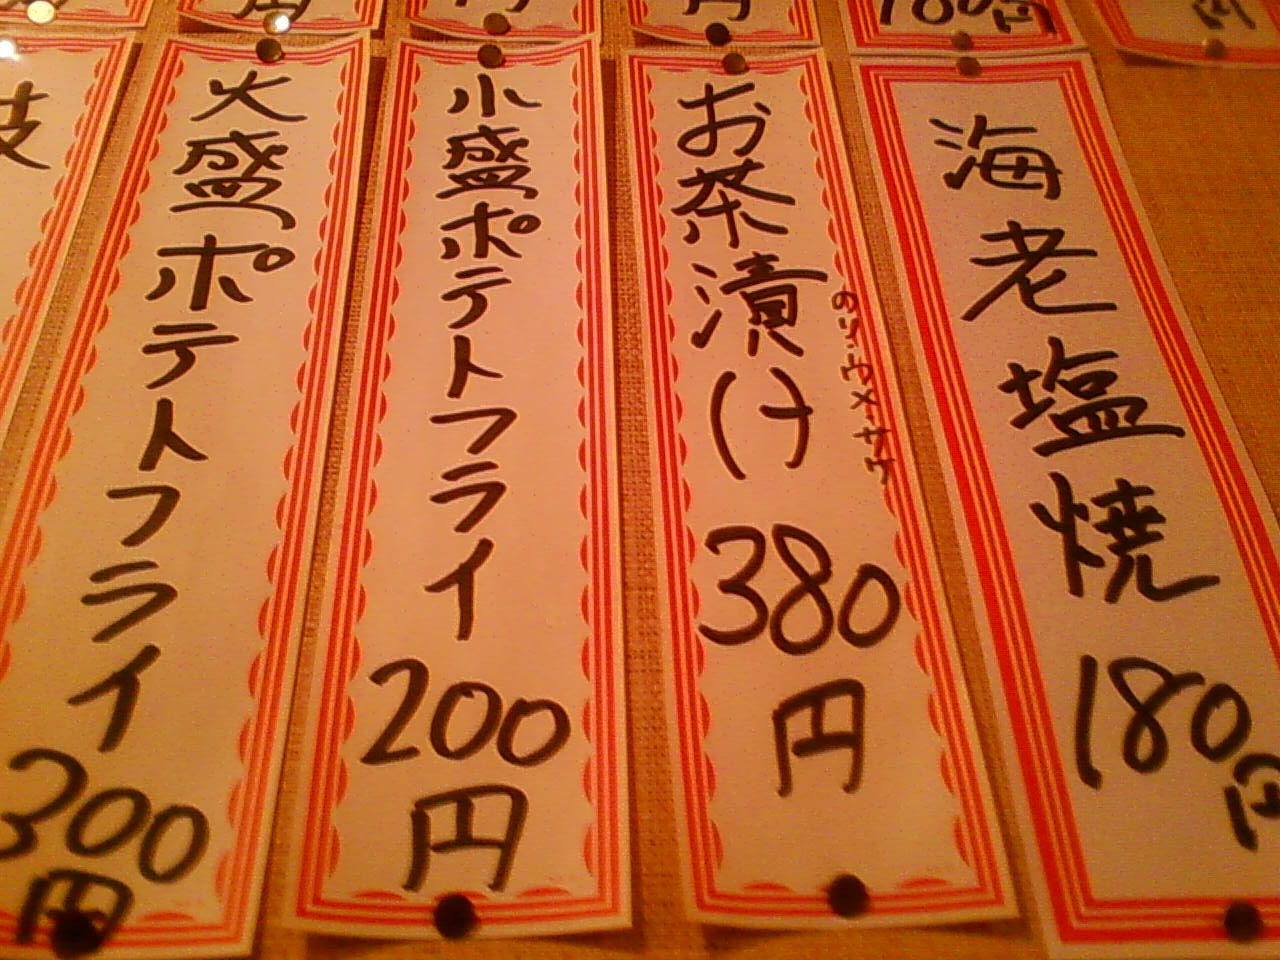 円
180円
円
円
円
海老塩焼 180円
お茶漬け 380円
のり・ウメ・サケ
小盛ポテトフライ 200円
火盛ポテトフライ 300円